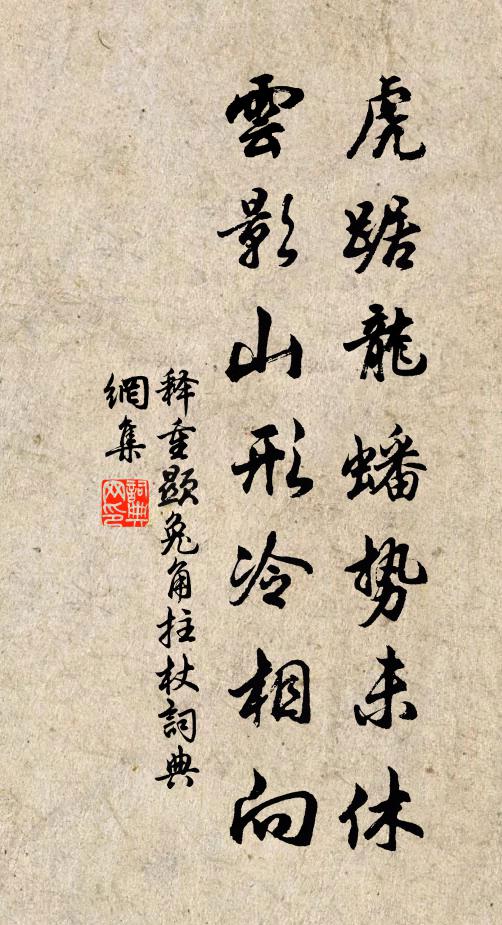 虎踞龍蟠势未休
雲影山形冷相向
释重顯兔角拄杖詞典
網集
詞典
网印